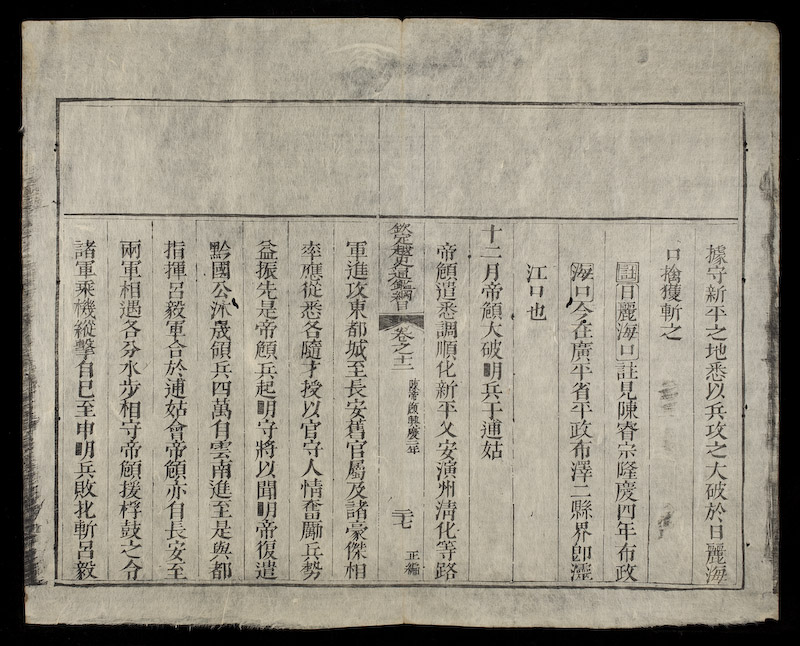 據守新平之地悉以兵攻之大破於日麗海
口擒獲斬之
註日麗海口註見陳睿宗隆慶四年布政
海口今在廣平省平政布澤二縣界卽澪
江口也
十二月帝頠大破明兵于逋姑
帝頠遣悉調順化新平乂安演州清化等路
欽定越史通鑑綱目 卷之十二 陳帝頠興慶二年 二七 正編
軍進攻東都城至長安舊官屬及諸豪傑相
率應從悉各隨才授以官守人情奮勵兵勢
益振先是帝頠兵起明守將以聞明帝復遣
黔國公沐晟領兵四萬自雲南進至是與都
指揮呂毅軍合於逋姑會帝頠亦自長安至
兩軍相遇各分水步相守帝頠援桴鼓之令
諸軍乘機縱擊自巳至申明兵敗北斬呂毅